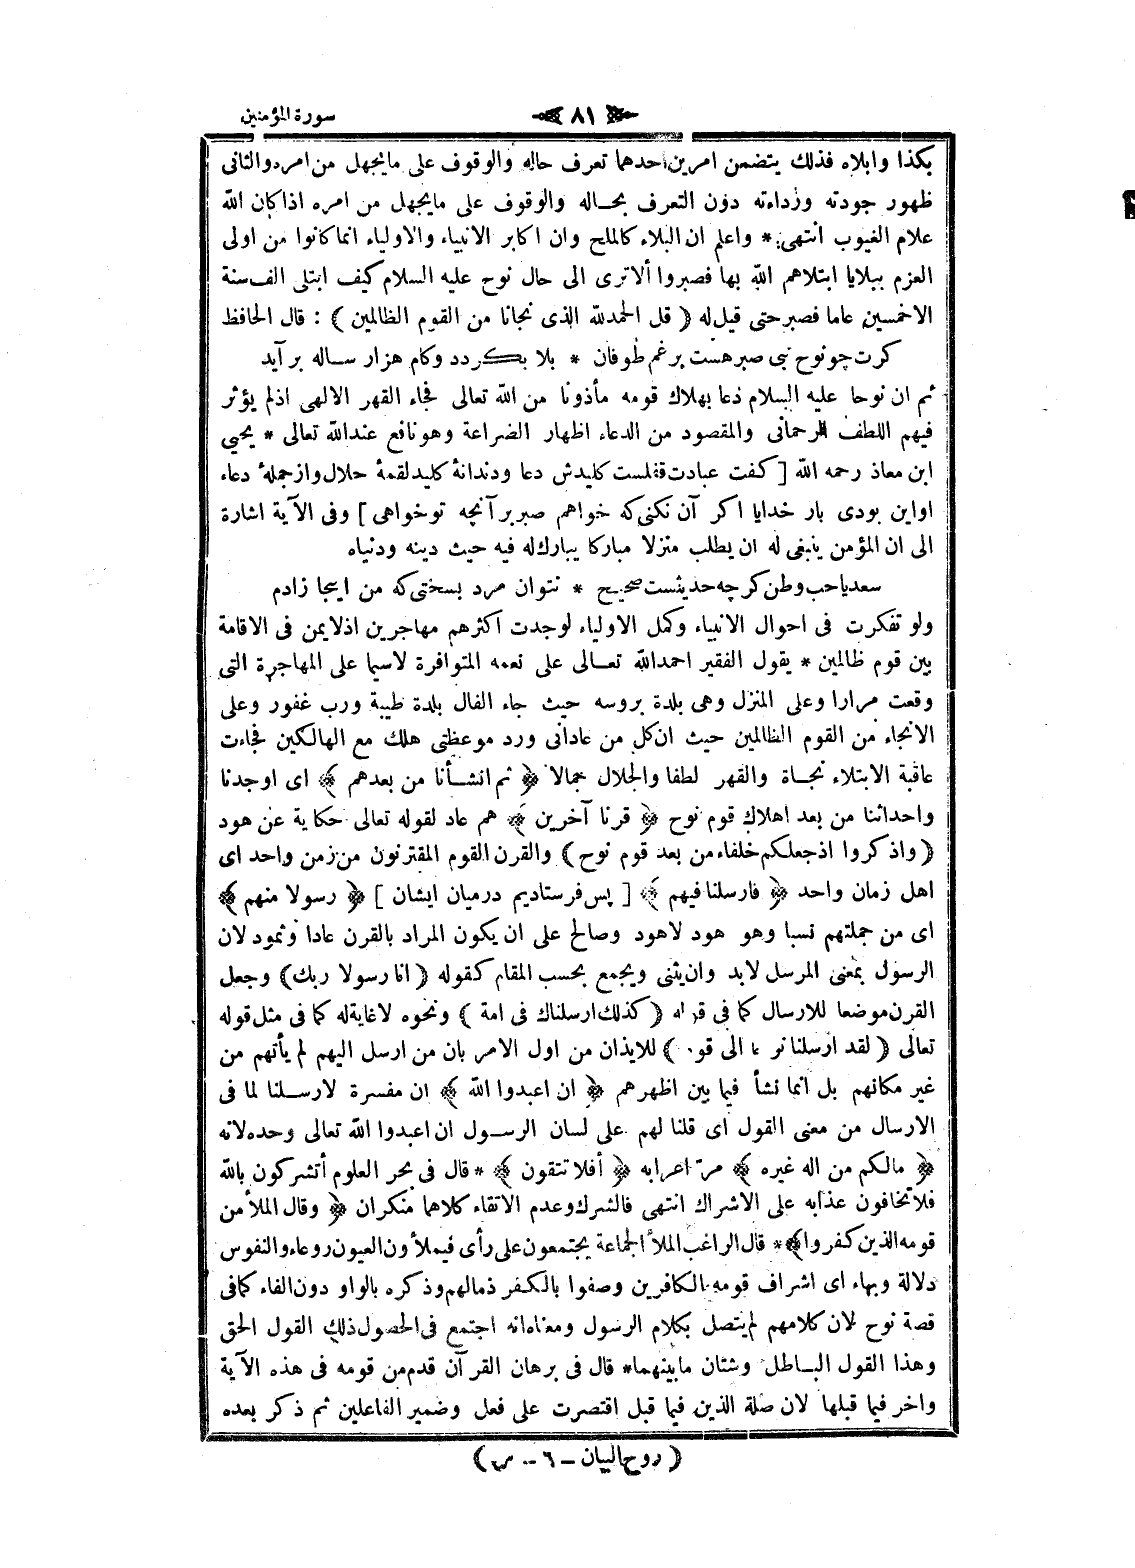 سورة المؤمنين
٨١
بكذا وابلاه فذلك يتضمن امرين احدهما تعرف حاله والوقوف على مايجهل من امره والثانى
ظهور جودته ورداءته دون التعرف بحاله والوقوف على مايجهل من امره اذا كان الله
علام الغيوب انتهى * واعلم ان البلاء كالملح وان اكابر الانبياء والاولياء انما كانوا من اولى
العزم ببلايا ابتلاهم الله بها فصبروا ألا ترى الى حال نوح عليه السلام كيف ابتلى الف سنة
الاخمسين عاما فصبر حتى قيل له ( قل الحمدلله الذى نجانا من القوم الظالمين ) : قال الحافظ
كرت چو نوح نبى صبر هست بر غم طوفان * بلا بكردد وكام هزار ساله بر آيد
ثم ان نوحا عليه السلام دعا بهلاك قومه مأذونا من الله تعالى فجاء القهر الالهى اذلم يؤثر
فيهم اللطف الرحمانى والمقصود من الدعاء اظهار الضراعة وهو نافع عندالله تعالى * يحيى
ابن معاذ رحمه الله [ كفت عبادت قفلست كليدش دعا ودندانۀ كليد لقمۀ حلال واز جملۀ دعاء
او اين بودى بار خدايا اكر آن نكنى كه خواهم صبر بر آنچه تو خواهى ] وفى الآية اشارة
الى ان المؤمن ينبغى له ان يطلب منزلا مباركا يبارك له فيه حيث دينه ودنياه
سعديا حب وطن كر چه حديثست صحيح * نتوان مرد بسختى كه من اينجا زادم
ولو تفكرت فى احوال الانبياء وكمل الاولياء لوجدت اكثرهم مهاجرين اذلايمن فى الاقامة
بين قوم ظالمين * يقول الفقير احمدالله تعالى على نعمه المتوافرة لاسيما على المهاجرة التى
وقعت مرارا وعلى المنزل وهى بلدة بروسه حيث جاء الفال بلدة طيبة ورب غفور وعلى
الانجاء من القوم الظالمين حيث ان كل من عادانى ورد موعظتى هلك مع الهالكين فجاءت
عاقبة الابتلاء نجاة والقهر لطفا والجلال جمالا ﴿ ثم انشأنا من بعدهم ﴾ اى اوجدنا
واحداثنا من بعد اهلاك قوم نوح ﴿ قرنا آخرين ﴾ هم عاد لقوله تعالى حكاية عن هود
( واذكروا اذجعلكم خلفاء من بعد قوم نوح ) والقرن القوم المقترنون من زمن واحد اى
اهل زمان واحد ﴿ فارسلنا فيهم ﴾ [ پس فرستاديم درميان ايشان ] ﴿ رسولا منهم ﴾
اى من جملتهم نسبا وهو هود لاهود وصالح على ان يكون المراد بالقرن عادا وثمود لان
الرسول بمعنى المرسل لابد وان يثنى ويجمع بحسب المقام كقوله ( انا رسولا ربك ) وجعل
القرن موضعا للارسال كما فى قوله ( كذلك ارسلناك فى امة ) ونحوه لاغاية له كما فى مثل قوله
تعالى ( لقد ارسلنا نوحا الى قومه ) للايذان من اول الامر بان من ارسل اليهم لم يأتهم من
غير مكانهم بل انما نشأ فيما بين اظهرهم ﴿ ان اعبدوا الله ﴾ ان مفسرة لارسلنا لما فى
الارسال من معنى القول اى قلنا لهم على لسان الرسول ان اعبدوا الله تعالى وحده لانه
﴿ مالكم من اله غيره ﴾ مر اعرابه ﴿ أفلا تتقون ﴾ * قال فى بحر العلوم أتشركون بالله
فلا تخافون عذابه على الاشراك انتهى فالشرك وعدم الاتقاء كلاهما منكران ﴿ وقال الملأ من
قومه الذين كفروا ﴾ * قال الراغب الملأ الجماعة يجتمعون على رأى فيملأون العيون روعاء والنفوس
دلالة وبهاء اى اشراف قومه الكافرين وصفوا بالكفر ذمالهم وذكره بالواو دون الفاء كما فى
قصة نوح لان كلامهم لم يتصل بكلام الرسول ومعناه انه اجتمع فى الحصول ذلك القول الحق
وهذا القول الباطل وشتان مابينهما * قال فى برهان القرآن قدم من قومه فى هذه الآية
واخر فيما قبلها لان صلة الذين فيما قبل اقتصرت على فعل وضمير الفاعلين ثم ذكر بعده
( روح البيان – ٦ – س )